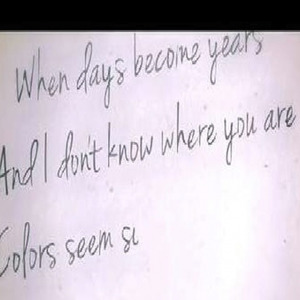 When days become years
And I don't know where you are
Colors seem